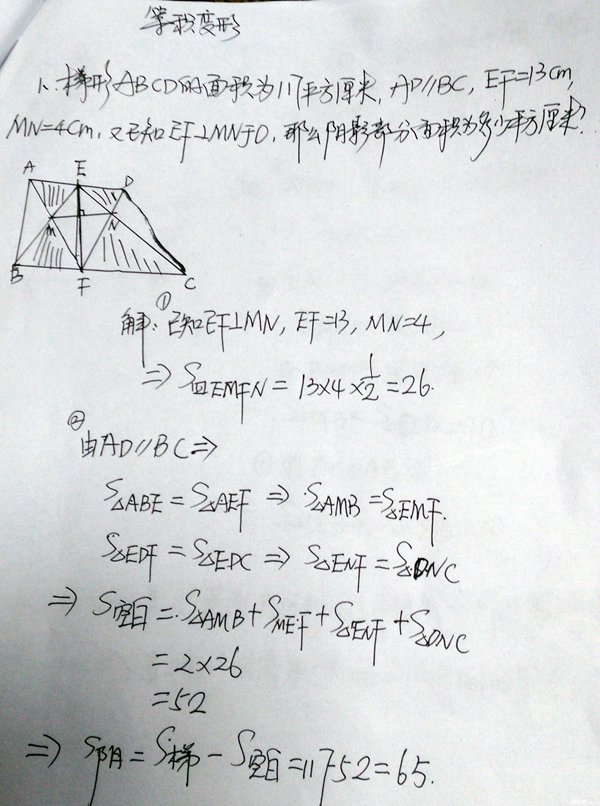 等积变形
1、梯形ABCD的面积为117平方厘米,AD//BC,EF=13cm,
MN=4cm,又已知EF⊥MN于O,那么阴影部分面积为多少平方厘米?
A E D
M N
B F C
①
解:已知EF⊥MN,EF=13,MN=4,
⇒ S四EMFN=13×4×1/2=26.
②
由AD//BC⇒
S△ABE=S△AEF ⇒ S△AMB=S△EMF.
S△EDF=S△EDC ⇒ S△ENF=S△DNC
⇒ S空白=S△AMB+SMEF+S△ENF+S△DNC
=2×26
=52
⇒ S阴=S梯-S空白=11752=65.